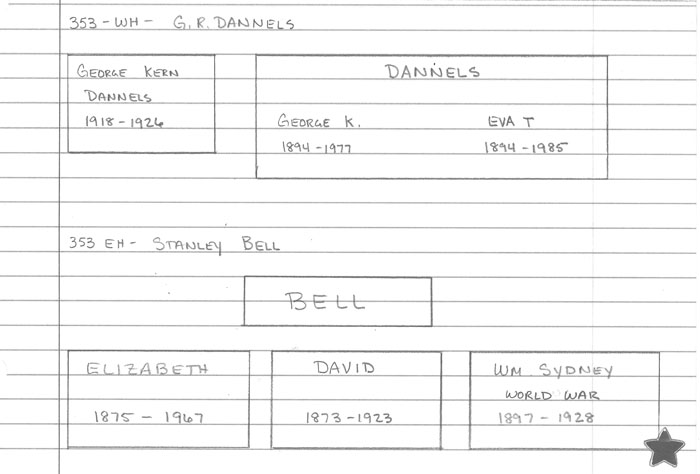 353 - WH - G. R. DANNELS
GEORGE KERN
DANNELS
1918 - 1926
DANNELS
GEORGE K. EVA T
1894 - 1977 1894 - 1985
353 EH - STANLEY BELL
BELL
ELIZABETH
1875 - 1967
DAVID
1873 - 1923
WM SYDNEY
WORLD WAR
1897 - 1928